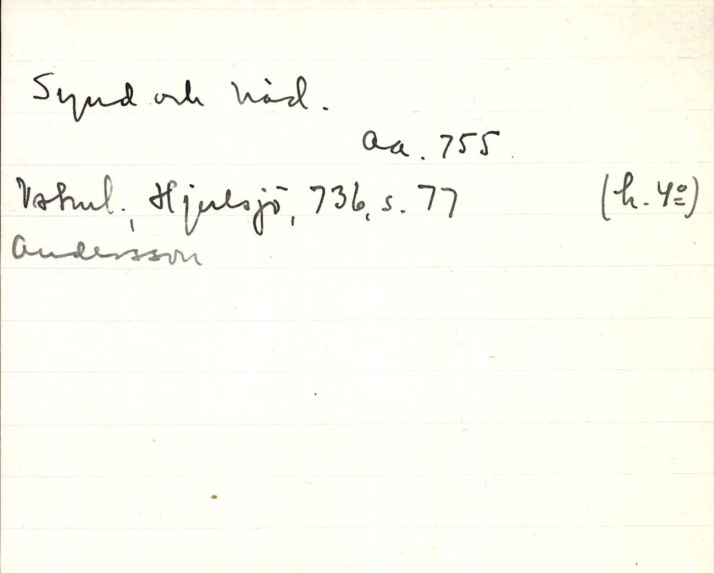 Synd och nåd.
Aa. 755.
Hjulsjö, 736, s. 77 (h. 4º)
Andersson